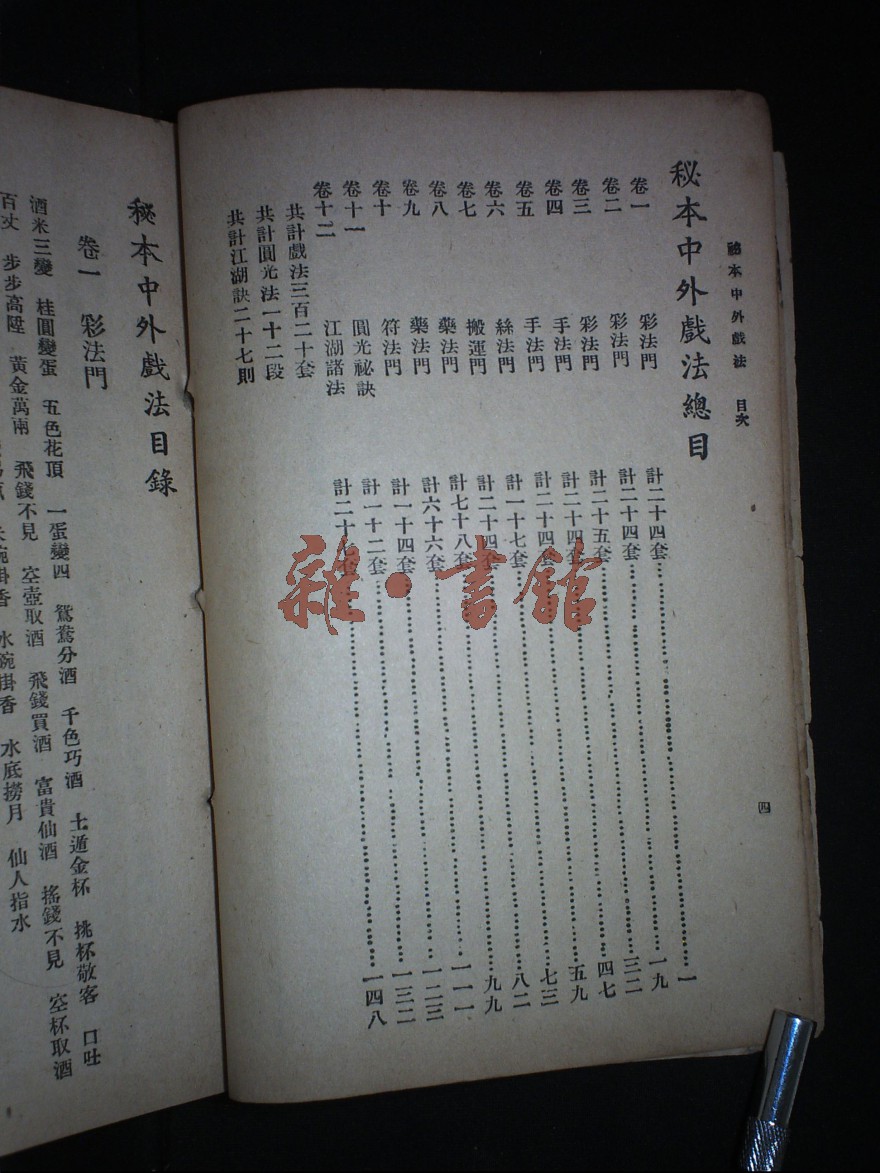 秘本中外戲法 目次
四
秘本中外戲法總目
卷一 彩法門 計二十四套……一
卷二 彩法門 計二十四套……一九
卷三 彩法門 計二十五套……三二
卷四 手法門 計二十四套……四七
卷五 手法門 計二十四套……五九
卷六 絲法門 計一十七套……七三
卷七 搬運門 計二十四套……八二
卷八 藥法門 計七十八套……九九
卷九 藥法門 計六十六套……一一一
卷十 符法門 計一十四套……一二三
卷十一 圓光祕訣 計一十二套……一三二
卷十二 江湖諸法 計二十七套……一四八
共計戲法三百二十套
共計圓光法一十二段
共計江湖訣二十七則
雜·書館
秘本中外戲法目錄
卷一 彩法門
酒米三變 桂圓變蛋 五色花頂 一蛋變四 鴛鴦分酒 千色巧酒 土遁金杯 挑杯敬客 口吐
百丈 步步高陞 黃金萬兩 飛錢不見 空壺取酒 飛錢買酒 富貴仙酒 搖錢不見 空杯取酒
碗掛香 水碗掛香 水底撈月 仙人指水